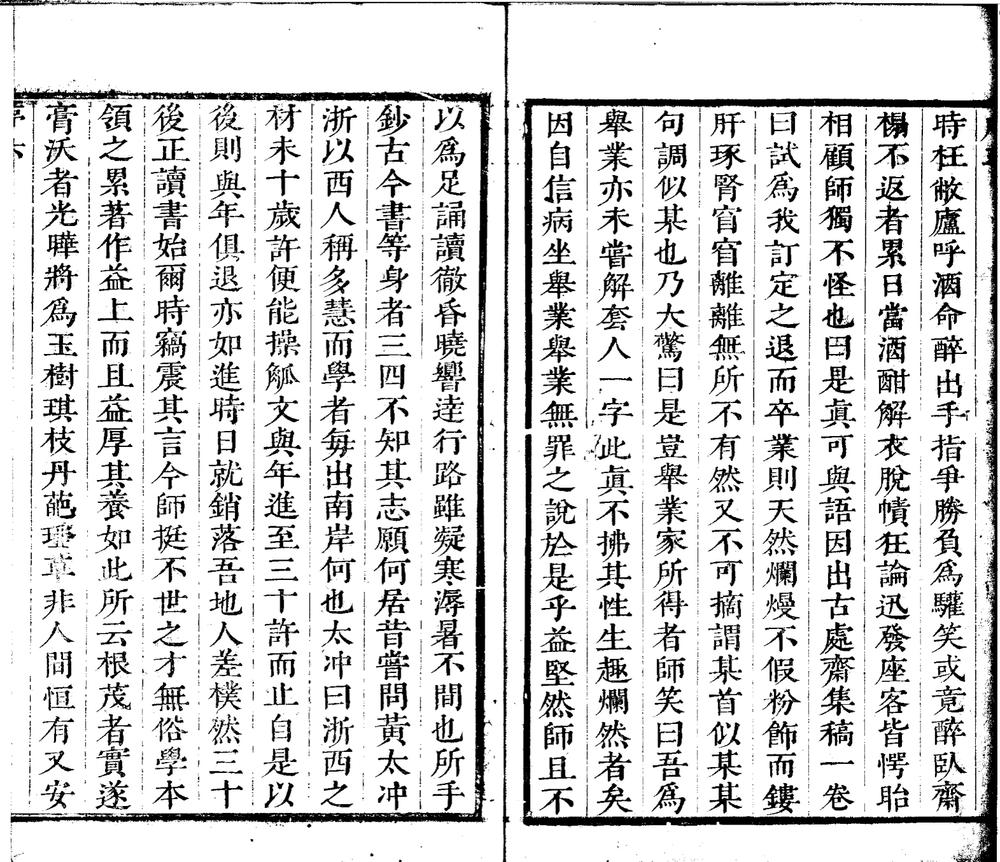 時枉敝廬呼酒命醉出手指爭勝負爲驩笑或竟醉臥齋
榻不返者累日當酒酣解衣脫幘狂論迅發座客皆愕眙
相顧師獨不怪也曰是眞可與語因出古處齋集稿一卷
曰試爲我訂定之退而卒業則天然爛熳不假粉飾而鏤
肝琢腎窅窅離離無所不有然又不可摘謂某首似某某
句調似某也乃大驚曰是豈舉業家所得者師笑曰吾爲
舉業亦未嘗解套人一字此眞不拂其性生趣爛然者矣
因自信病坐舉業舉業無罪之說於是乎益堅然師且不
以爲足誦讀徹昏曉響逹行路雖凝寒溽暑不間也所手
鈔古今書等身者三四不知其志願何居昔嘗問黃太冲
浙以西人稱多慧而學者每出南岸何也太冲曰浙西之
材未十歲許便能操觚文與年進至三十許而止自是以
後則與年俱退亦如進時日就銷落吾地人差樸然三十
後正讀書始爾時竊震其言今師挺不世之才無俗學本
領之累著作益上而且益厚其養如此所云根茂者實遂
膏沃者光曄將爲玉樹琪枝丹葩瓊草非人間恒有又安
序六